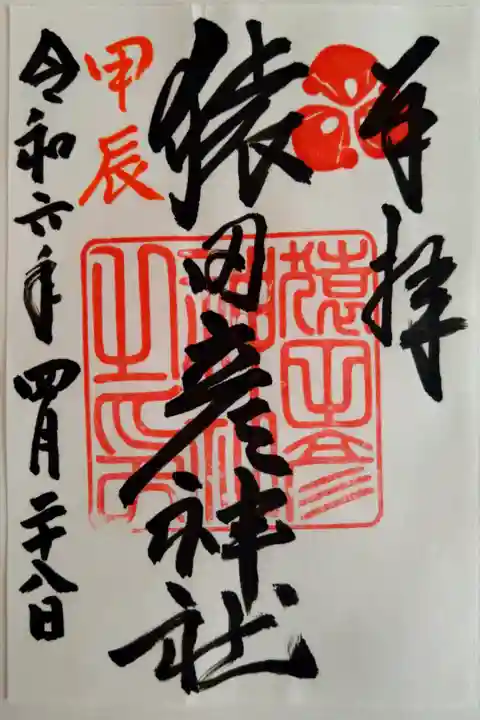 奉拝
猿田彦神社
猿田彦神社之印
甲辰
令和六年四月二十八日